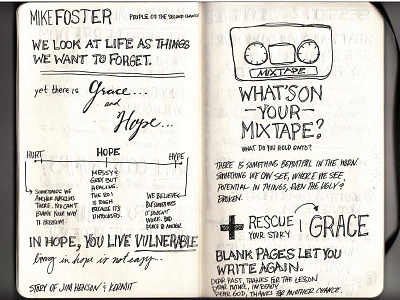 MIKE FOSTER PEOPLE OF THE SECOND CHANCE
WE LOOK AT LIFE AS THINGS
WE WANT TO FORGET.
yet there is Grace...
and
Hope...
HURT HOPE HYPE
SOMETIMES WE
ANCHOR OURSELVES
THERE. YOU CAN'T
YOUR WAY
TO FREEDOM
MESSY &
GREY BUT
HEALING.
THE
IS
ROUGH
BECAUSE IT'S
UNTOUCHED.
WE BELIEVE
BUT SOMETIMES
IT DOESN'T
WORK. BAD
PLACE TO ANCHOR.
IN HOPE, YOU LIVE VULNERABLE
living in hope is not easy..
STORY OF JIM HENSON & KERMIT
MIXTAPE
WHAT'S ON
-YOUR-
MIXTAPE?
WHAT DO YOU HOLD ONTO?
THERE IS SOMETHING BEAUTIFUL IN THE WORN.
SOMETHING WE CAN SEE, WHERE WE SEE,
POTENTIAL IN THINGS, EVEN THE UGLY?
BROKEN.
+ RESCUE
YOUR STORY
GRACE
BLANK PAGES LET YOU
WRITE AGAIN.
DEAR PAST, THANKS FOR THE LESSON
DEAR FUTURE, I'M READY
DEAR GOD, THANKS FOR ANOTHER CHANCE.